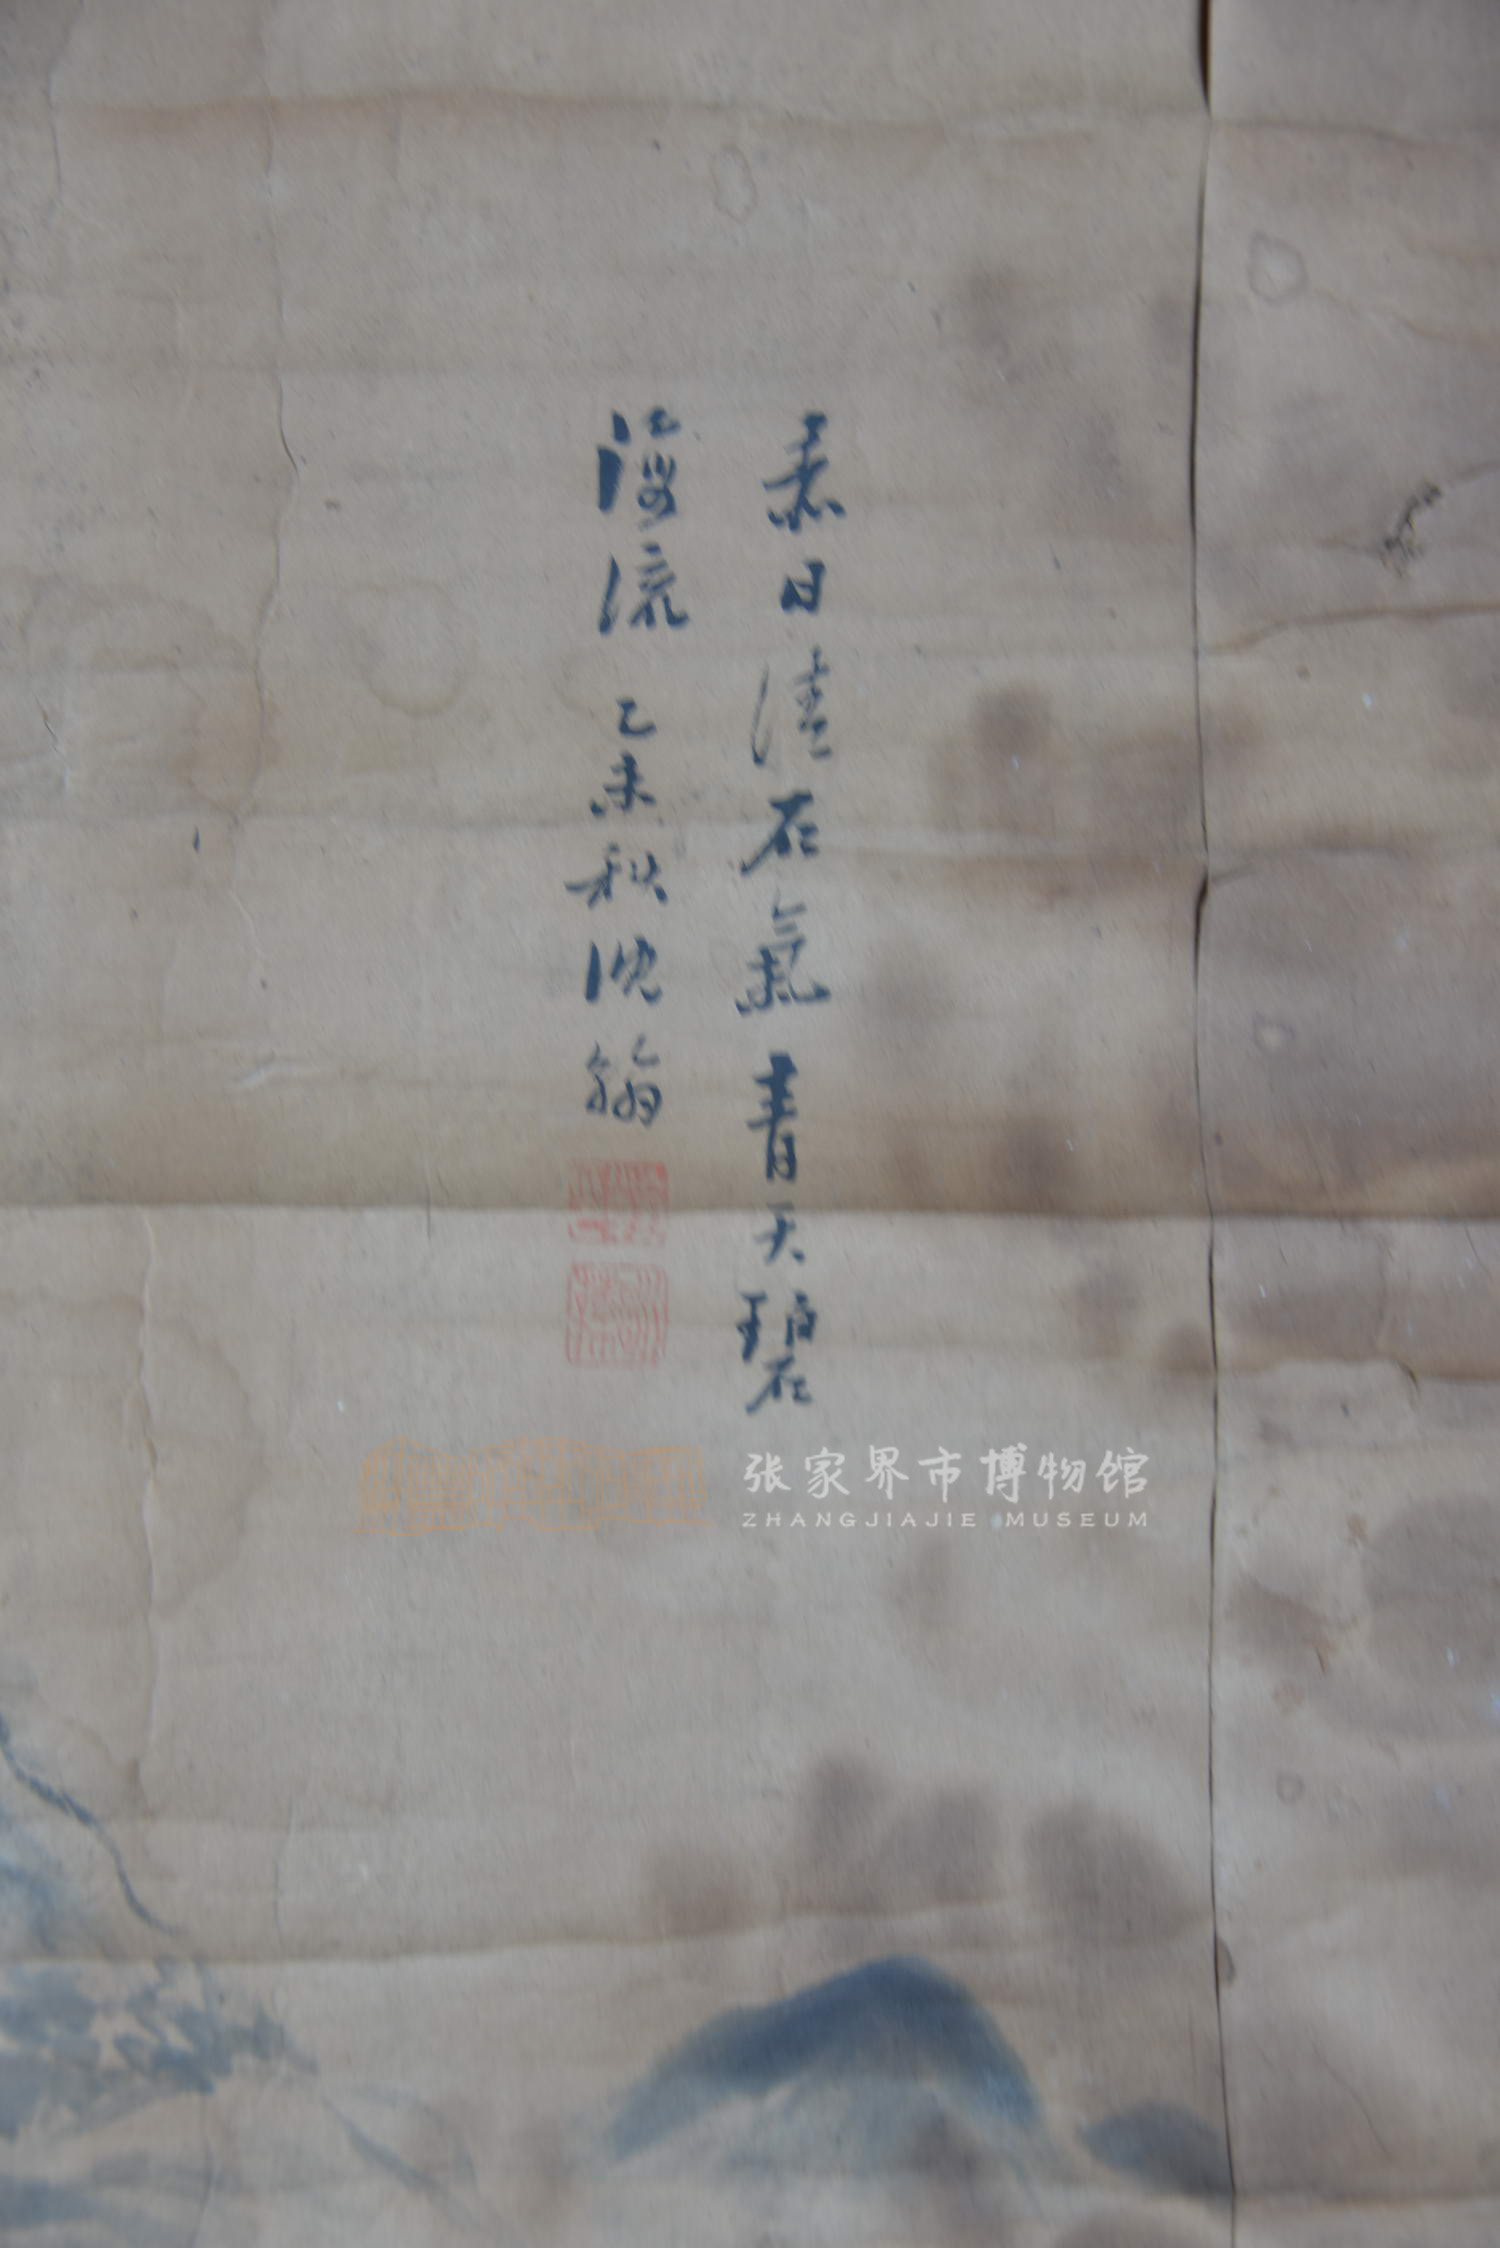 日清石氣青天碧
流乙未秋沈翁
张家界市博物馆
ZHANGJIAJIE MUSEUM